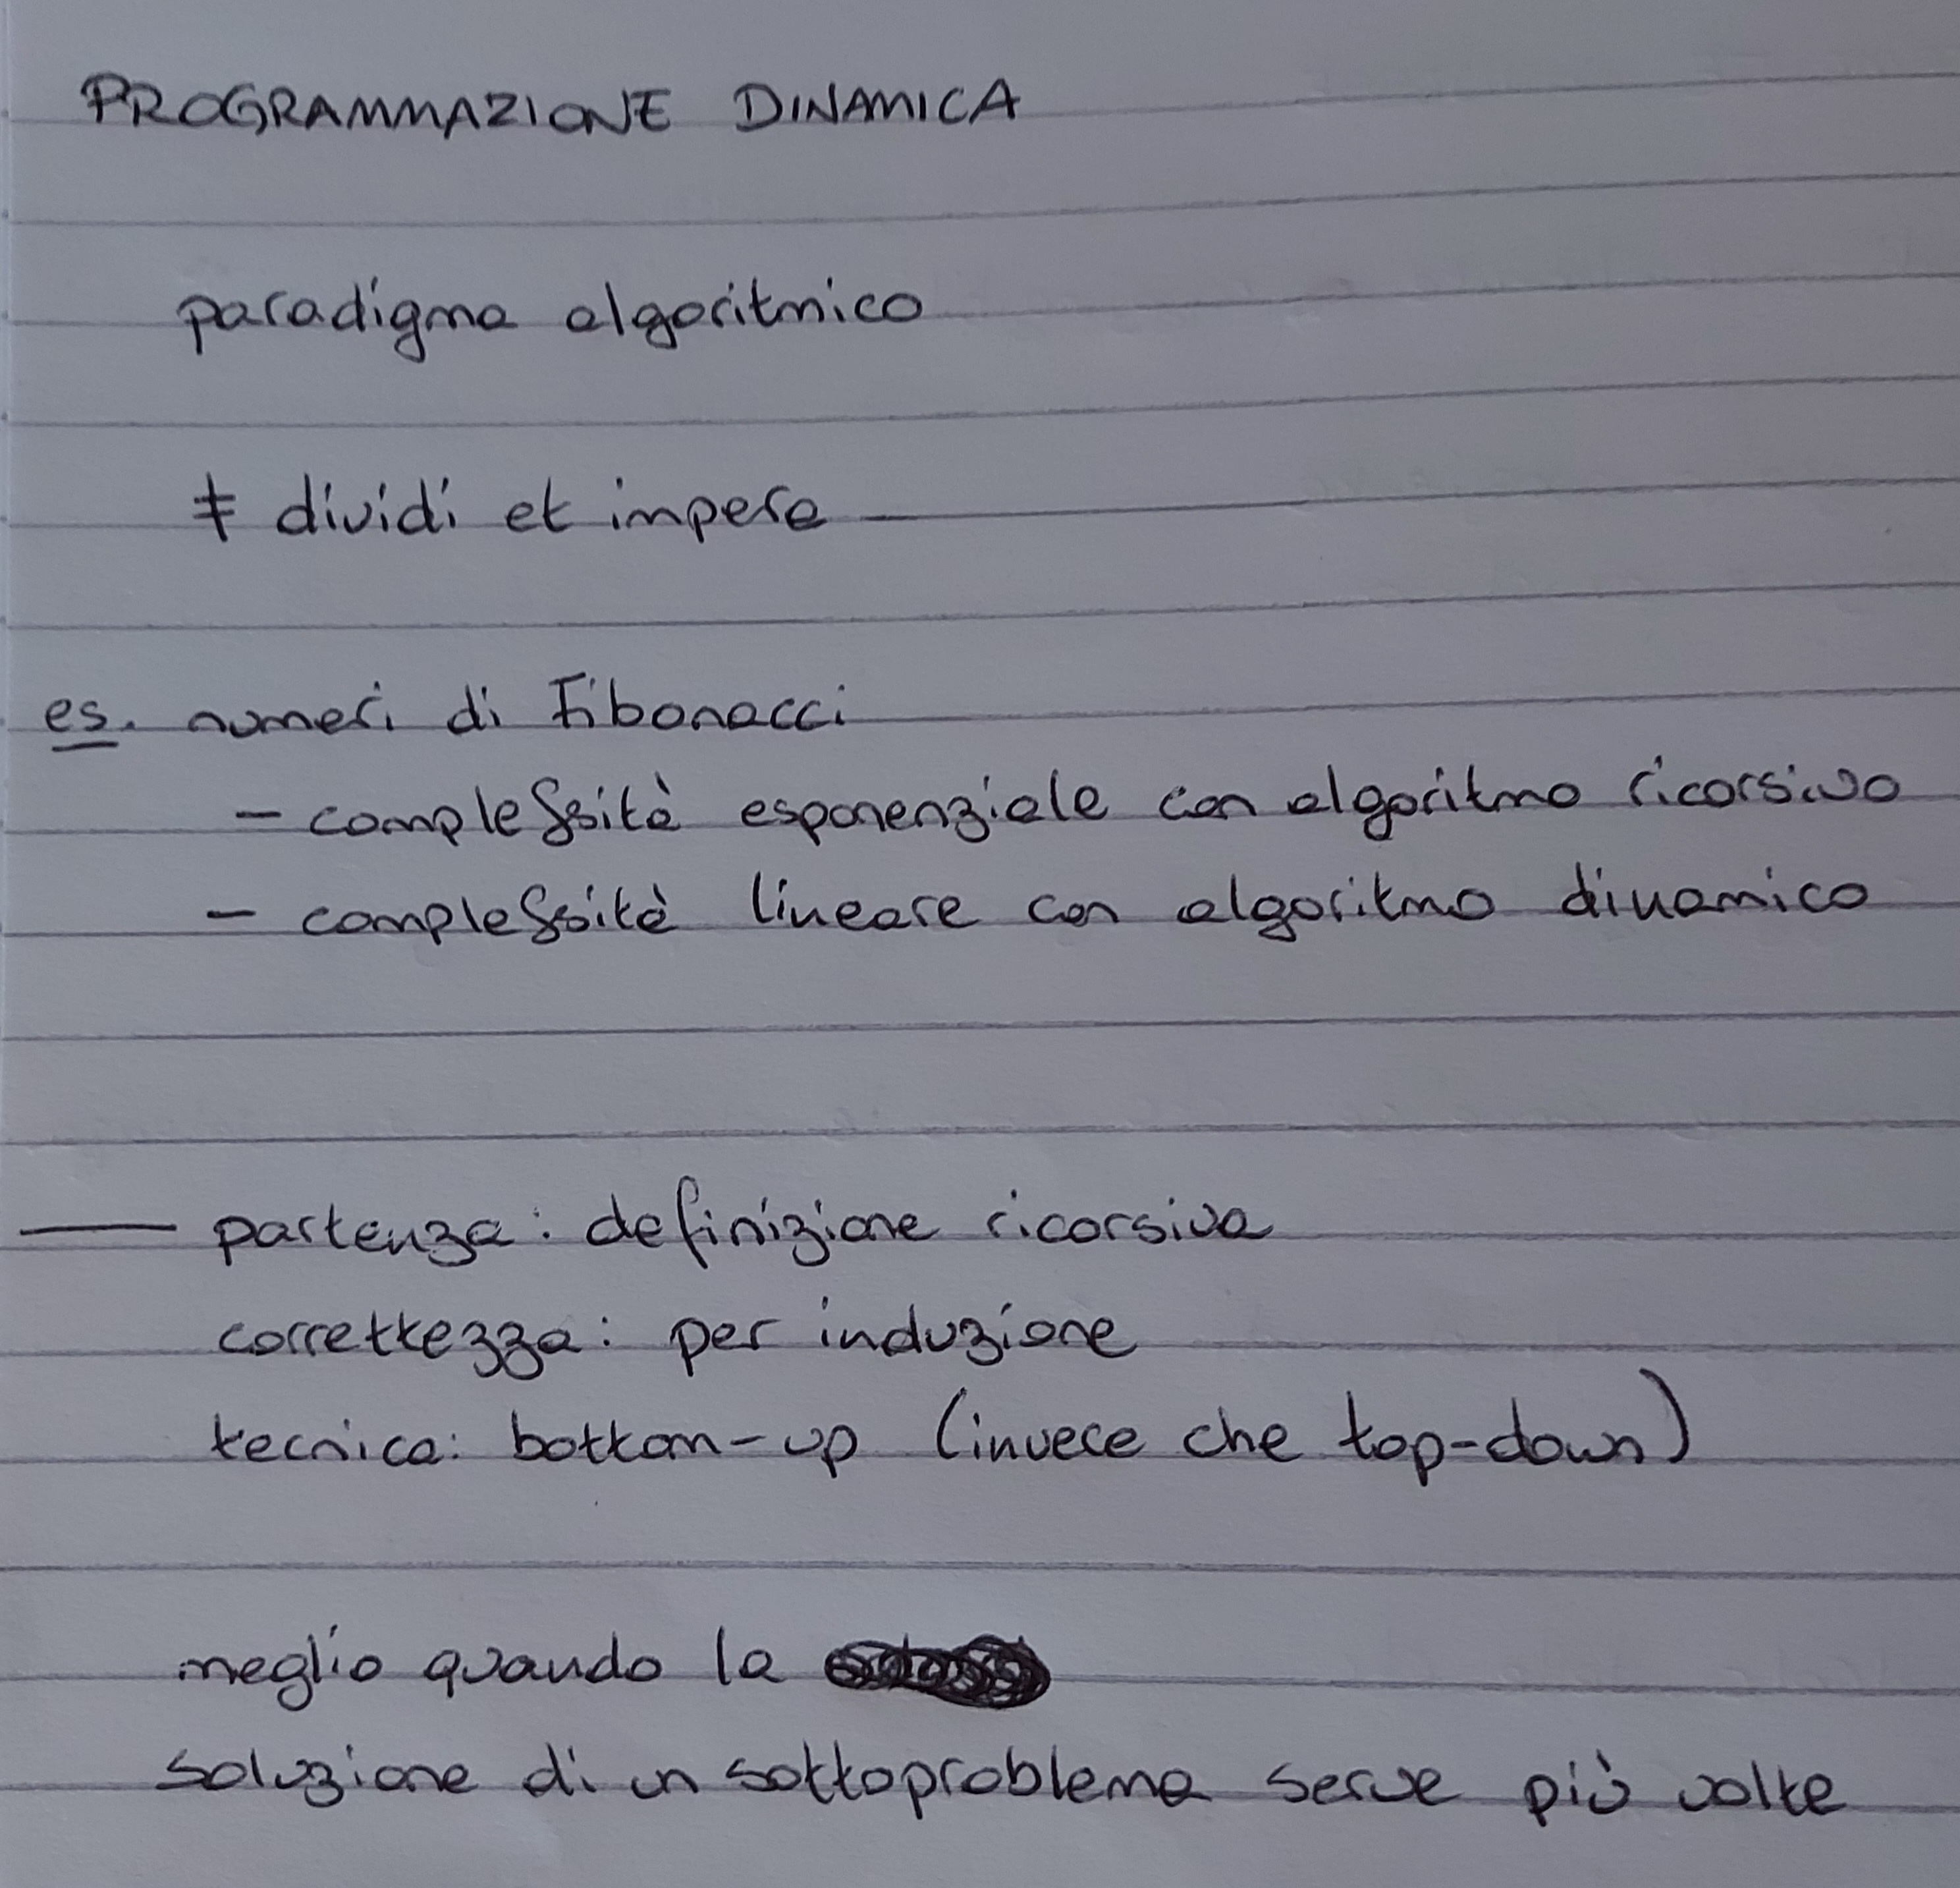 PROGRAMMAZIONE DINAMICA
paradigma algoritmico
≠ dividi et impera
es. numeri di Fibonacci
- complessità esponenziale con algoritmo ricorsivo
- complessità lineare con algoritmo dinamico
partenza: definizione ricorsiva
correttezza: per induzione
tecnica: bottom-up (invece che top-down)
meglio quando la
soluzione di un sottoproblema serve più volte